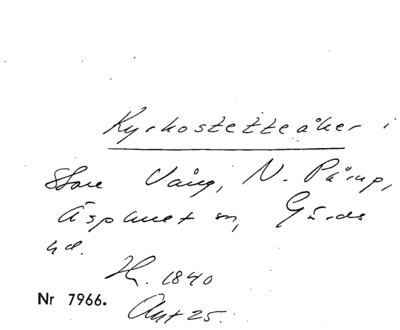 Kyrkostetteåker i
Store Vång, N. Pårup,
Äsphuet sn, Gärds
hd.
H. 1840
Nr 7966. Akt 25.